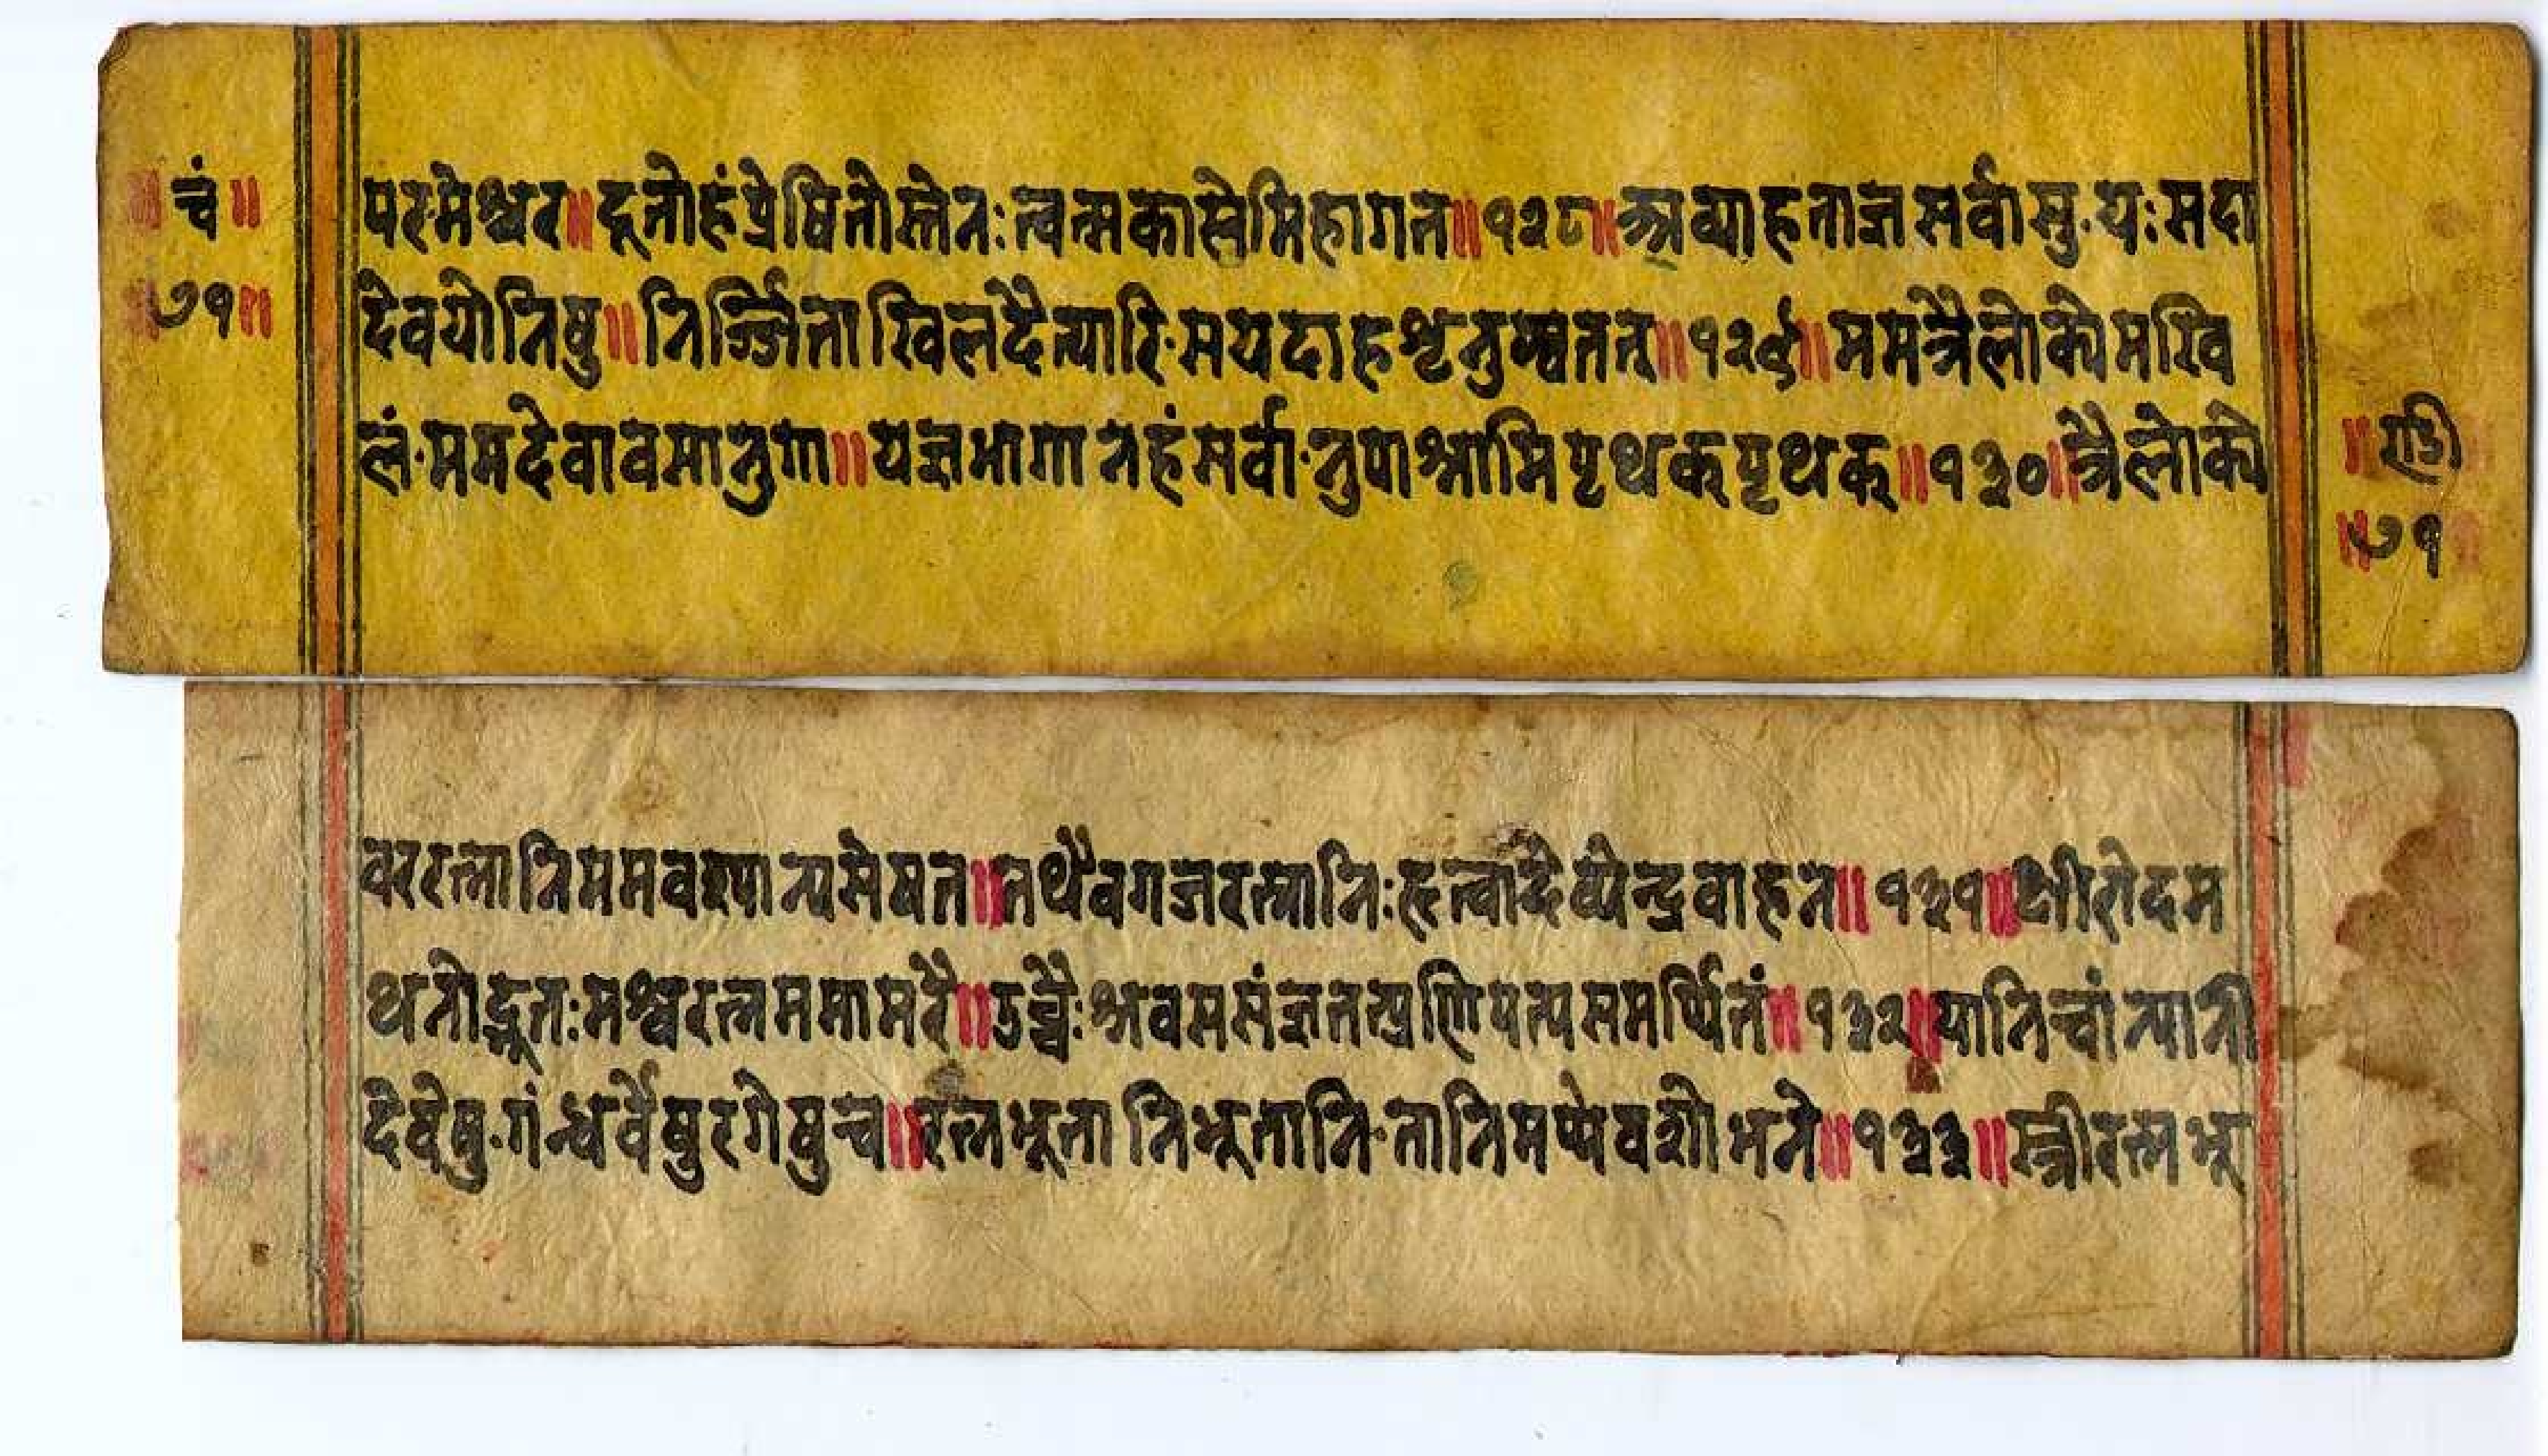 ॥ चं ॥
॥ ७१ ॥
परमेश्वर॥दूतोहंप्रेषितोस्तेन:त्वत्मकासेमिहागत॥१२८॥अव्याहताज्ञसर्वासु·य:सदा
देवयोनिषु॥निर्ज्जिताखिलदैत्यारि·सयदाहशृनुष्वतत्॥१२९॥ममत्रैलोक्येमखि
लं·ममदेवावसानुगा॥यज्ञभागानहंसर्वा·नुपाश्नामिपृथक्पृथक्॥१३०॥त्रैलोक्ये
॥ राडी
॥ ७१
वररत्नानिममवस्पान्यसेषत॥तथैवगजरत्नानि:हृत्वादेव्येन्द्रवाहन॥१३१॥क्षीरोदम
थनोद्भूत:मश्वरत्नममामरै॥उच्चै:श्रवससंज्ञतत्प्रणिपत्यसमर्पितं॥१३२॥यानिचांन्यानी
देवेषु·गंन्धर्वेषुरगेषुच॥रत्नभूतानिभूतानि·तानिमय्येवशोभने॥१३३॥स्त्रीरत्नभू